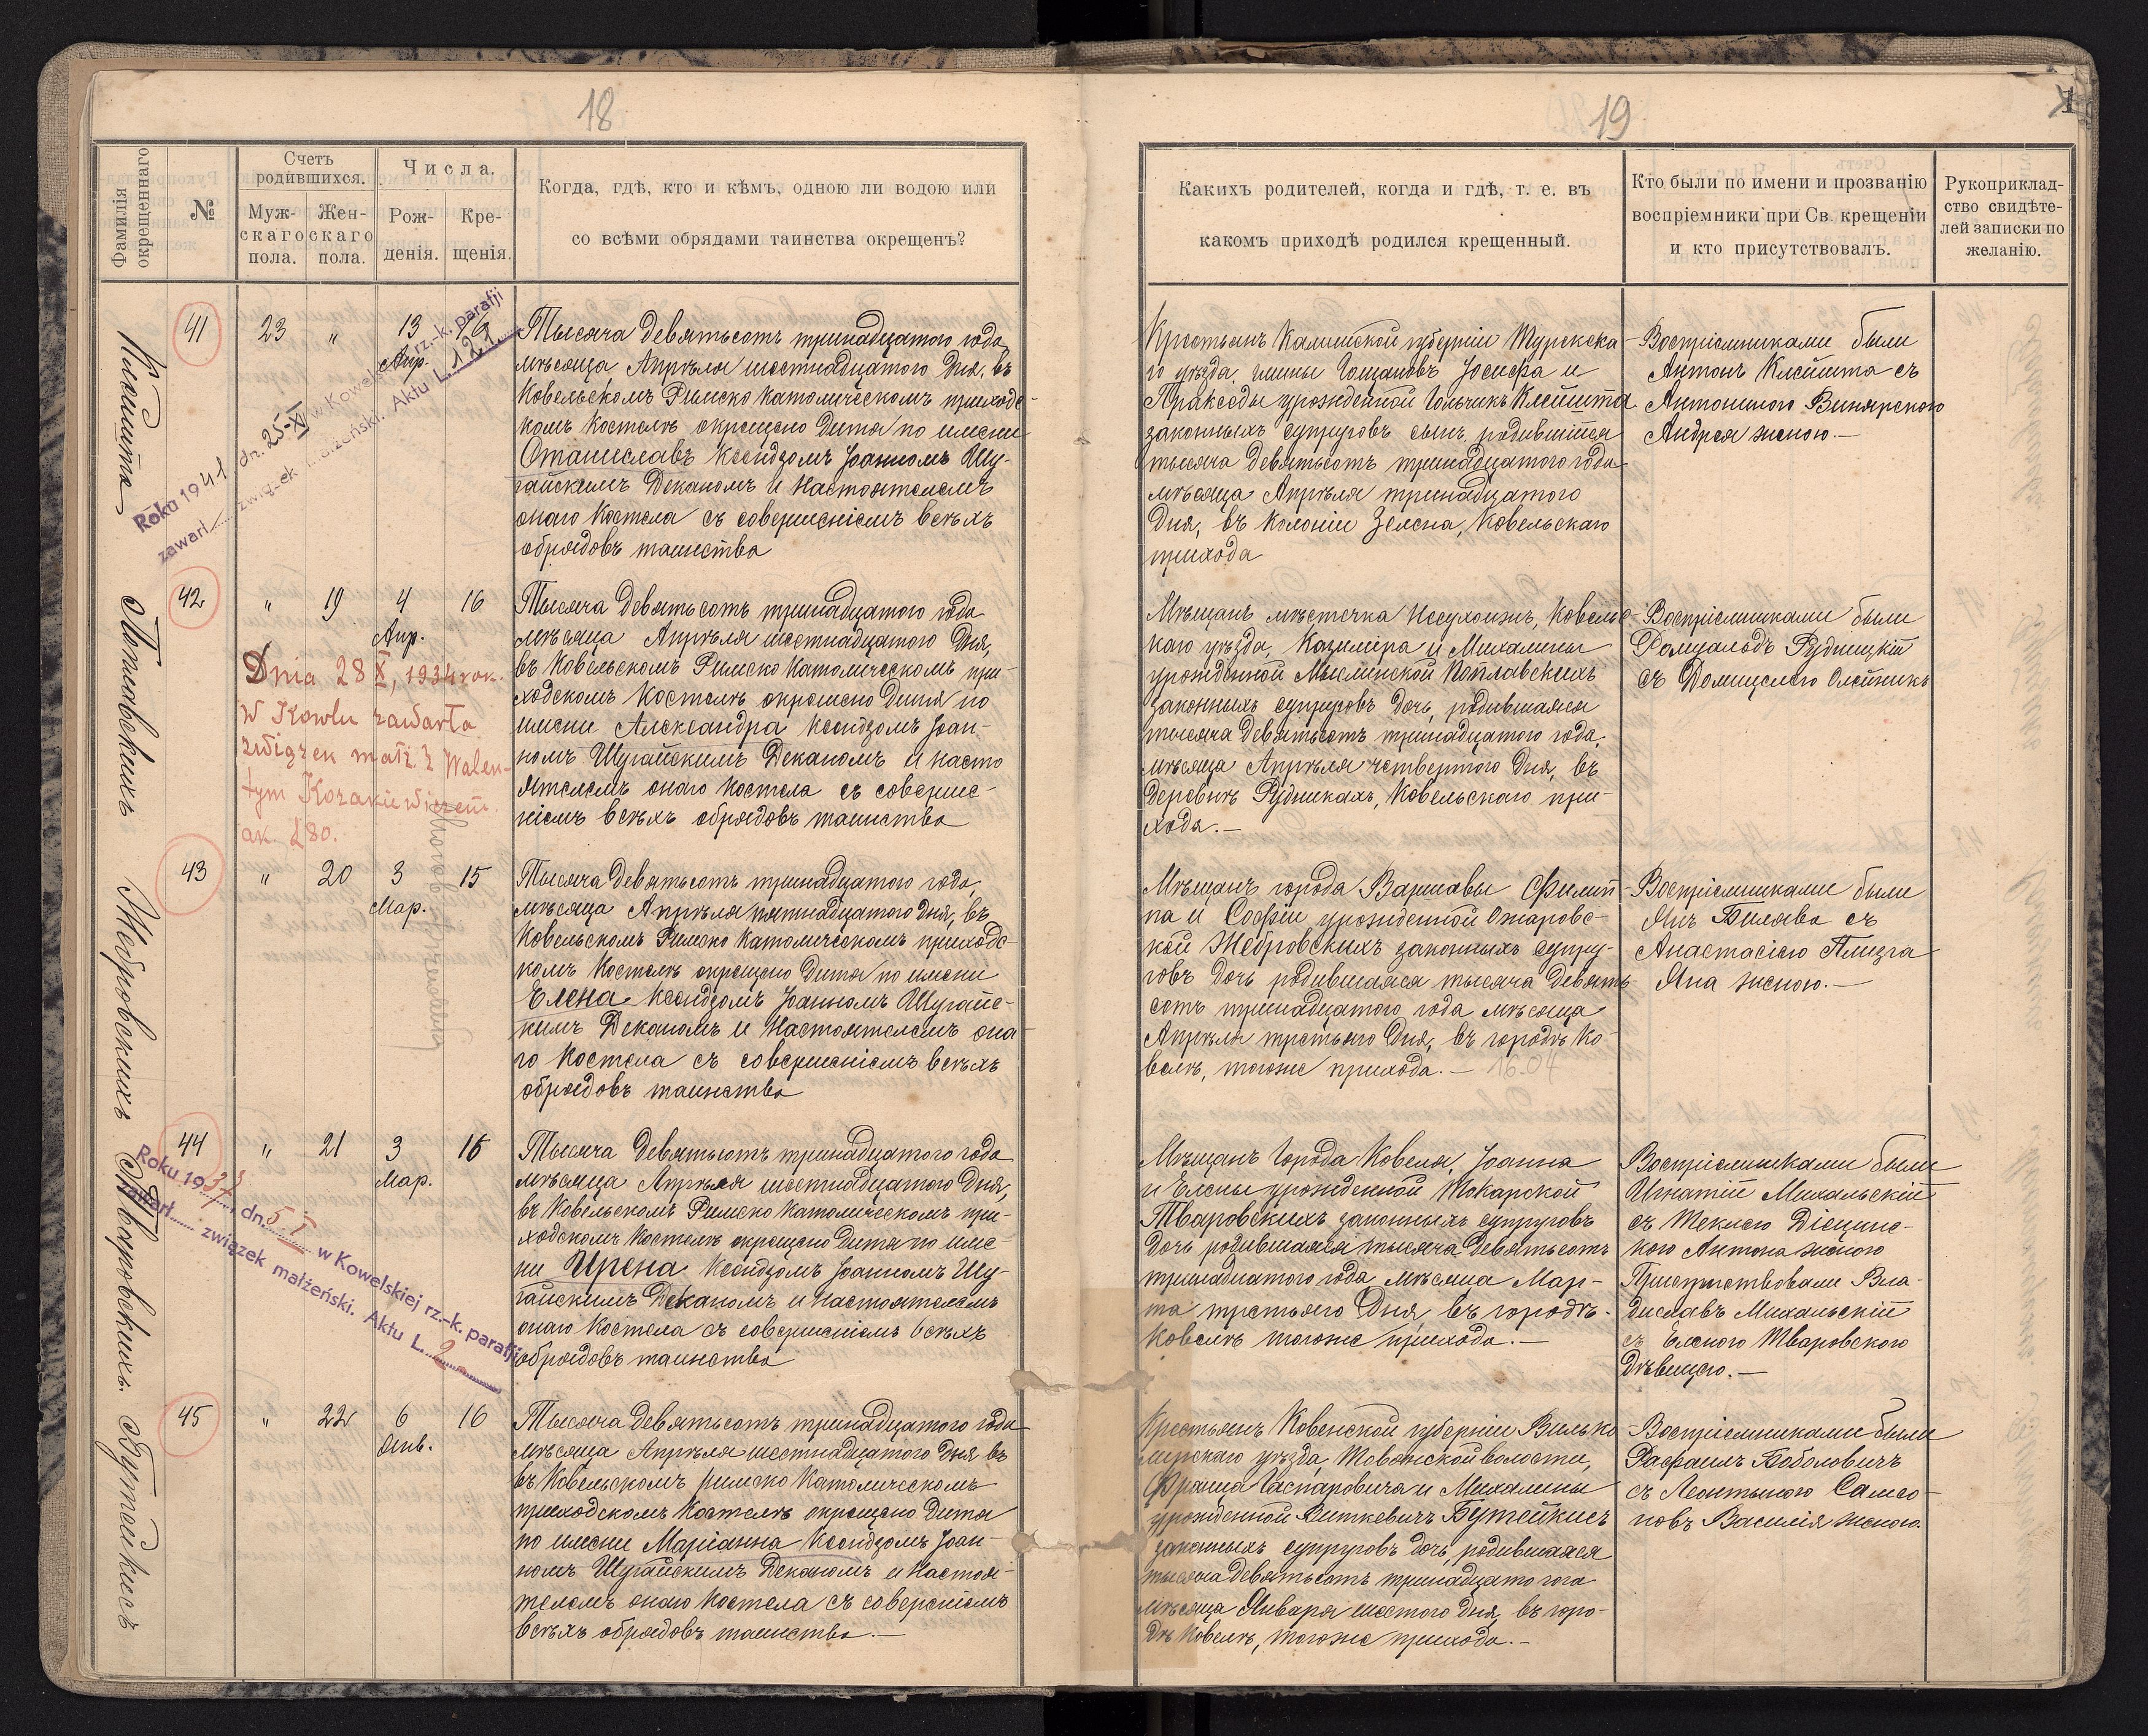 18
Фамилія окрещеннаго
№
Счетъ родившихся.
Муж-
скаго
пола.
Жен-
скаго
пола.
Числа.
Рож-
денія.
Кре-
щенія.
Когда, гдѣ, кто и кѣмъ, одною ли водою или
со всѣми обрядами таинства окрещенъ?
41
23
"
13
Апр.
16
Тысяча девятьсотъ тринадцатого года
мѣсяца Апрѣля шестнадцатого дня, въ
Ковельскомъ Римско Католическомъ приходс-
комъ Костелѣ окрещено дитя по имени
Станиславъ Ксендзомъ Іоанномъ Шу-
гайскимъ Деканомъ и Настоятелемъ
онаго Костела съ совершеніемъ всѣхъ
обрядовъ таинства
Roku 1941 dn. 25-XI w Kowelskiej rz.-k. parafji
zawarł związek małżeński. Aktu L. 121.
42
"
19
4
Апр.
16
Поплавскихъ
Тысяча девятьсотъ тринадцатого года
мѣсяца Апрѣля шестнадцатого дня,
въ Ковельскомъ Римско Католическомъ при-
ходскомъ Костелѣ окрещено дитя по
имени Александра Ксендзомъ Іоан-
номъ Шугайскимъ Деканомъ и Насто
ятелемъ онаго Костела съ соверше-
ніемъ всѣхъ обрядовъ таинства
Dnia 28 X, 1934 rok.
w Kowlu zawarła
związek małż. z Walen-
tym Kozakiewiczem
ak. L 80.
43
"
20
3
Мар.
15
Жебровскихъ
Тысяча девятьсотъ тринадцатого года,
мѣсяца Апрѣля пятнадцатого дня, въ
Ковельскомъ Римско Католическомъ приходс-
комъ Костелѣ окрещено дитя по имени
Елена Ксендзомъ Іоанномъ Шугайс-
кимъ Деканомъ и Настоятелемъ она-
го Костела съ совершеніемъ всѣхъ
обрядовъ таинства
44
"
21
3
Мар.
16
Тваровскихъ.
Тысяча девятьсотъ тринадцатого года
мѣсяца Апрѣля шестнадцатого дня,
въ Ковельскомъ Римско Католическомъ при-
ходскомъ Костелѣ окрещено дитя по име-
ни Ирена Ксендзомъ Іоанномъ Шу-
гайскимъ Деканомъ и Настоятелемъ
онаго Костела съ совершеніемъ всѣхъ
обрядовъ таинства
Roku 1937 dn. 5 I w Kowelskiej rz.-k. parafji
zawarł związek małżeński. Aktu L. 2
45
"
22
6
Янв.
16
Бутейкисъ
Тысяча девятьсотъ тринадцатого года
мѣсяца Апрѣля шестнадцатого дня въ
въ Ковельскомъ римско Католическомъ
приходскомъ Костелѣ окрещено дитя
по имени Маріанна Ксендзомъ Іоан-
номъ Шугайскимъ Деканомъ и Настоя-
телемъ онаго Костела съ совершеніемъ
всѣхъ обрядовъ таинства.—
19
Какихъ родителей, когда и гдѣ, т. е. въ
какомъ приходѣ родился крещенный.
Кто были по имени и прозванію
воспріемники при Св. крещеніи
и кто присутствовалъ.
Рукоприклад-
ство свидѣте-
лей записки по
желанію.
Крестьянъ Калишской губерніи Турекска-
го уѣзда, гмины Іосифа и
Пракседы урожденной Гольчикъ Клейшта
законныхъ супруговъ сынъ, родившійся
тысяча девятьсотъ тринадцатого года
мѣсяца Апрѣля тринадцатого
дня, въ колоніи Зелена, Ковельскаго
прихода
Воспріемниками были
Антонъ Клейшта съ
Антониною Винярского
Андрея женою.—
Мѣщанъ мѣстечка Несухоижъ, Ковельс-
каго уѣзда, Казиміра и Михалины
урожденной Мыслинской Поплавскихъ
законныхъ супруговъ дочь, родившаяся
тысяча девятьсотъ тринадцатого года,
мѣсяца Апрѣля четвертого дня, въ
деревнѣ Рудникахъ, Ковельскаго при-
хода.—
Воспріемниками были
Ромуальдъ Рудницкій
съ Домицелею Олейникъ
Мѣщанъ города Варшавы Филип-
па и Софіи урожденной Ожаровс-
кой Жебровскихъ законныхъ супру-
говъ дочь родившаяся тысяча девять-
сотъ тринадцатого года мѣсяца
Апрѣля третьяго дня, въ городѣ Ко-
велѣ, тогоже прихода.— 16.04
Воспріемниками были
Янъ Билява съ
Анастасіею Плизга
Яна женою.—
Мѣщанъ Города Ковеля, Іоанна
и Елены урожденной Токарской
Тваровскихъ законныхъ супруговъ
дочь родившаяся тысяча девятьсотъ
тринадцатого года мѣсяца Мар-
та третьяго дня, въ городѣ-
Ковелѣ тогоже прихода.—
Воспріемниками были
Игнатій Михальскій
съ Теклею Дісцинс-
кого Антона женою
Присутствовали Вла-
диславъ Михальскій
съ Еленою Тваровского
дѣвицею.—
Крестьянъ Ковенской губерніи Вилько
мирскаго уѣзда, Товянской волости,
Франца Гаспаровича и Михалины
урожденной Виткевичъ Бутейкисъ
законныхъ супруговъ дочь, родившаяся
тысяча девятьсотъ тринадцатого года
мѣсяца Января шестого дня, въ горо-
дѣ Ковелѣ, тогоже прихода.—
Воспріемниками были
Рафаилъ Боболовичъ
съ Леонтыною Самсо-
новъ Василія женою.